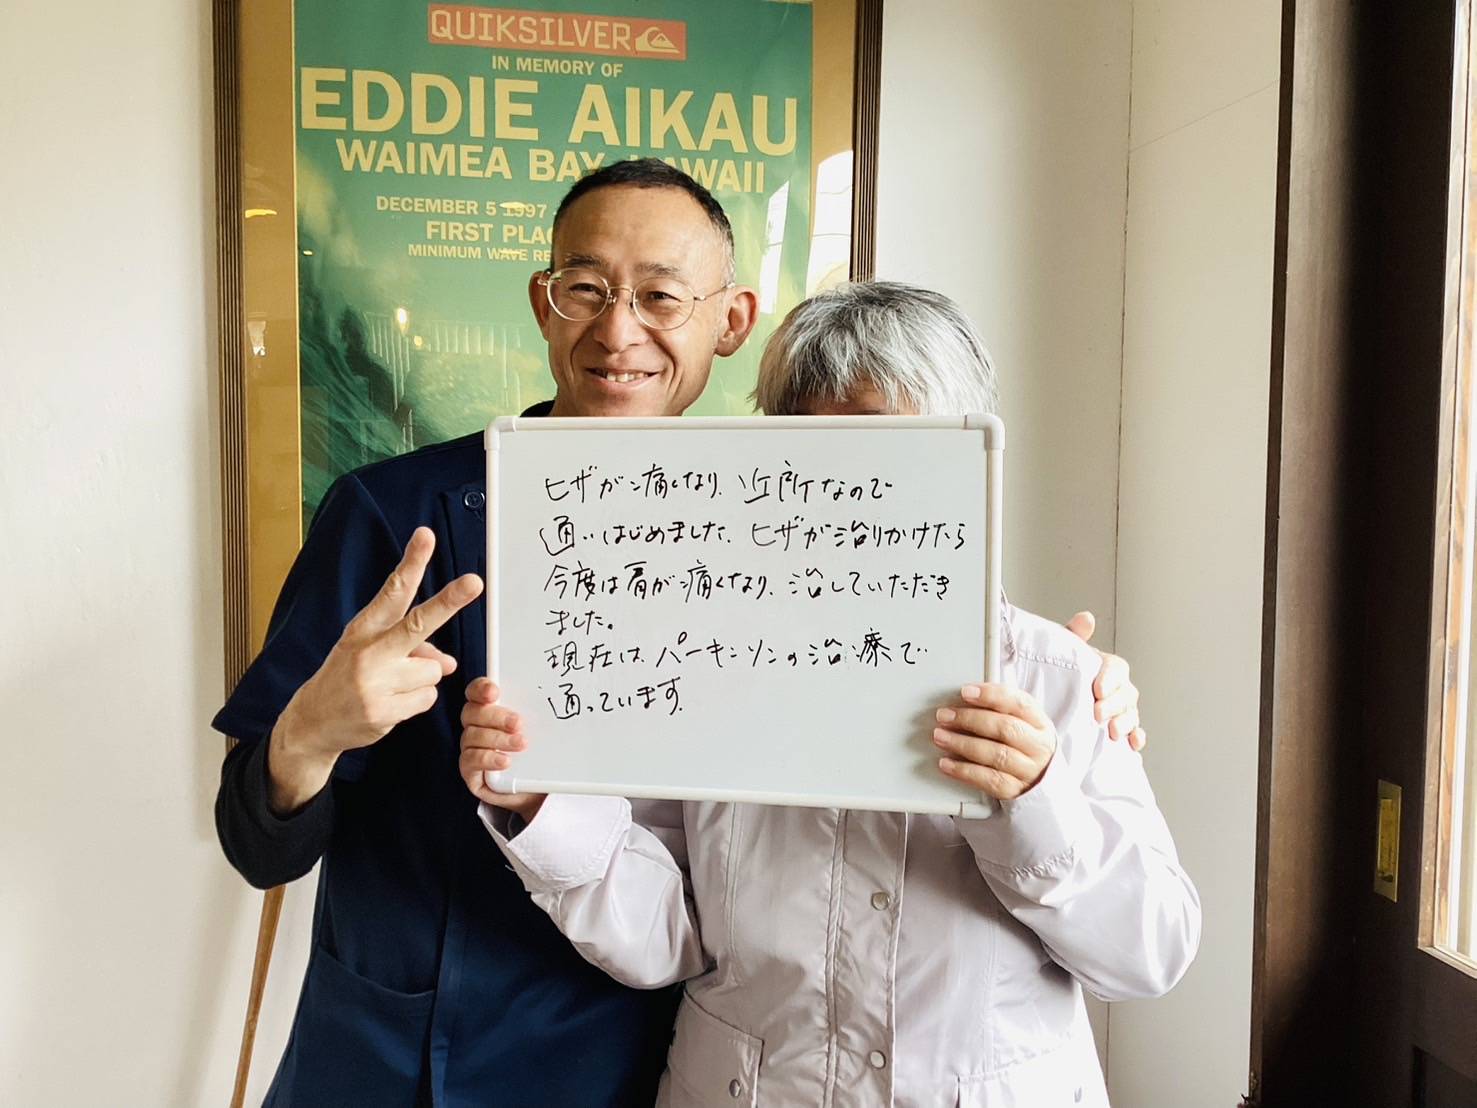 QUIKSILVER
IN MEMORY OF
EDDIE AIKAU
WAIMEA BAY HAWAII
DECEMBER 5 1997
FIRST PLAC
MINIMUM WAVE RE
ヒザが痛くなり、近所なので
通いはじめました。ヒザが治りかけたら
今度は肩が痛くなり、治していただき
ました。
現在は、パーキンソンの治療で
通っています。